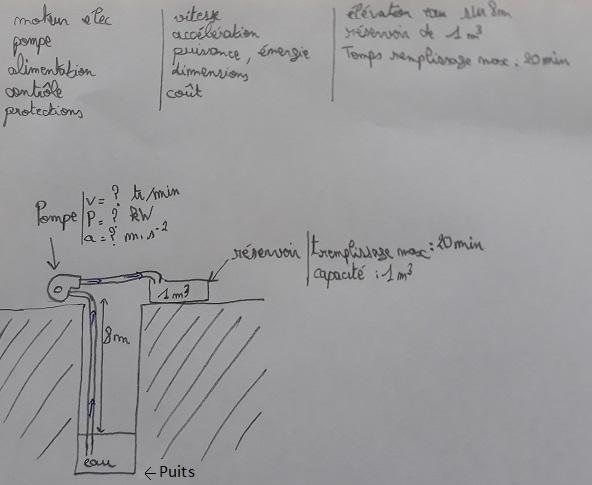 moteur elec
pompe
alimentation
contrôle
protections
vitesse
accélération
puissance, énergie
dimensions
coût
élévation eau sur 8m
réservoir de 1 m³
Temps remplissage max : 20 min
Pompe
v = ? tr/min
P = ? kW
a = ? m.s⁻²
réservoir
t remplissage max : 20 min
capacité : 1 m³
1 m³
8m
eau
← Puits